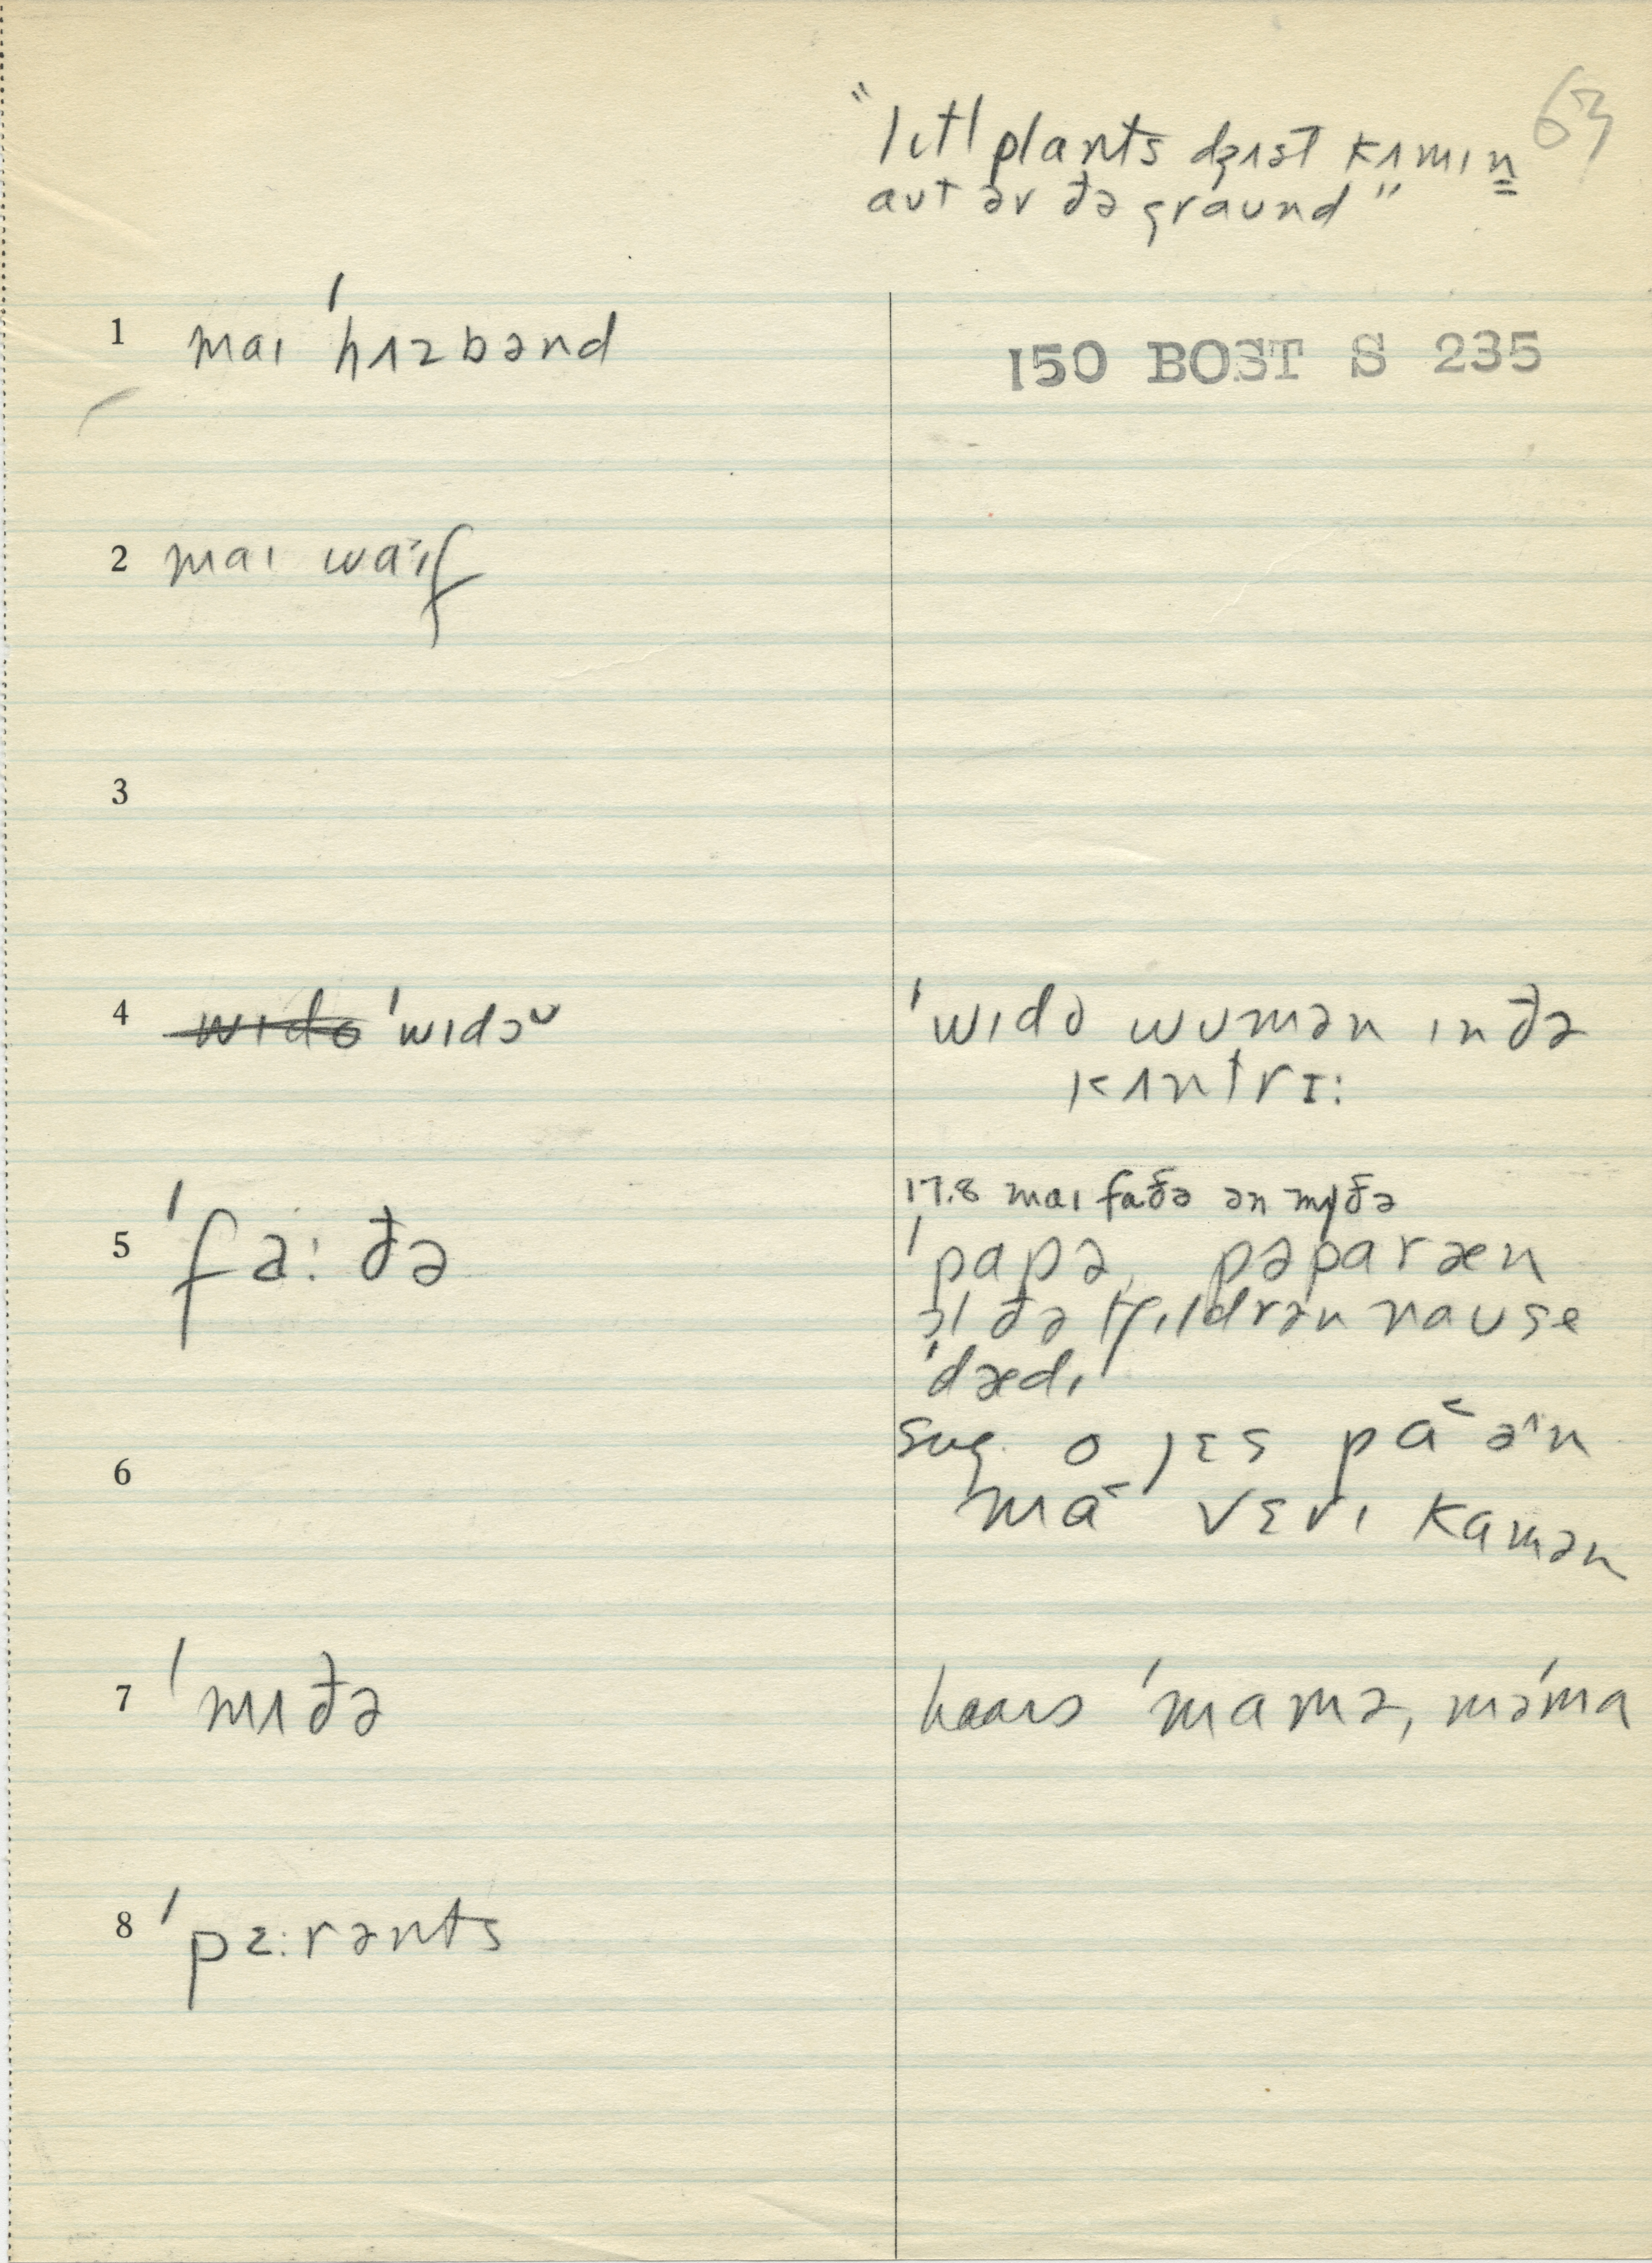 63
"lɪtl plants dʒɪəst kʌmɪn
aʊt əv ðə graʊnd"
1 maɪ ˈhʌzbənd
150 BOST S 235
2 maɪ waˑɪf
3
4 ˈwɪdəᶷ
ˈwɪdə wʊmən ɪn ðə
kʌntrɪ:
5 ˈfa:ðə
17.8 maɪ faðə ən mʌðə
ˈpapə, pəpa ræn
ɔl ðə tʃɪldrən naʊ se
ˈdædɪ
6
sug. o jɛs pa˂ əˆn
ma˂ vɛrɪ kamən
7 ˈmʌðə
hears ˈmamə, məˈma
8 ˈpɛ:rənts